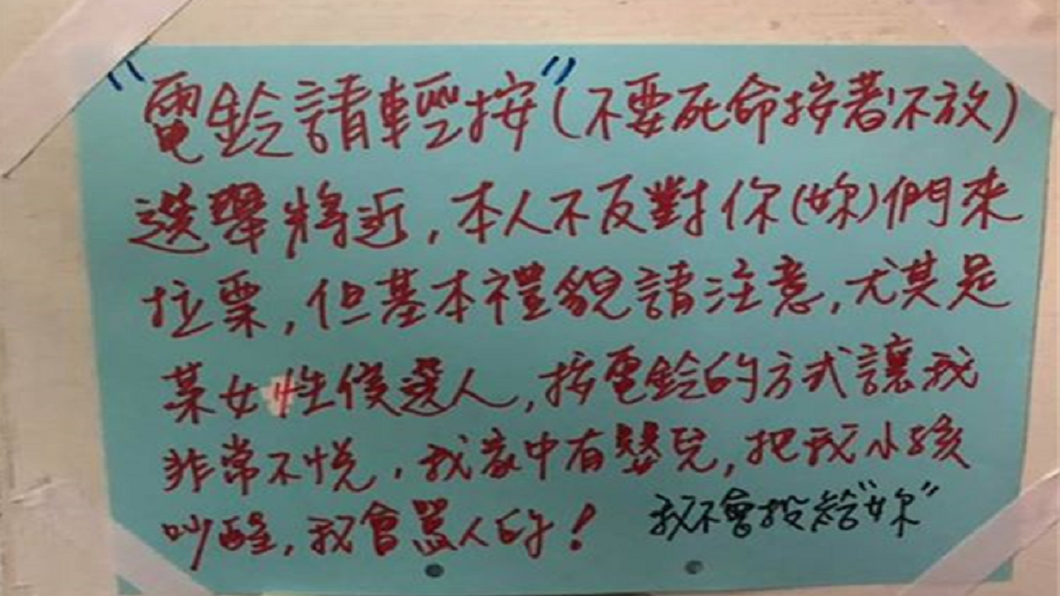 "電鈴請輕按"(不要死命按著不放)
選舉將近,本人不反對你(妳)們來
拉票,但基本禮貌請注意,尤其是
某女性侯選人,按電鈴的方式讓我
非常不悅,我家中有嬰兒,把我小孩
吵醒,我會罵人的! 我不會投給"妳"